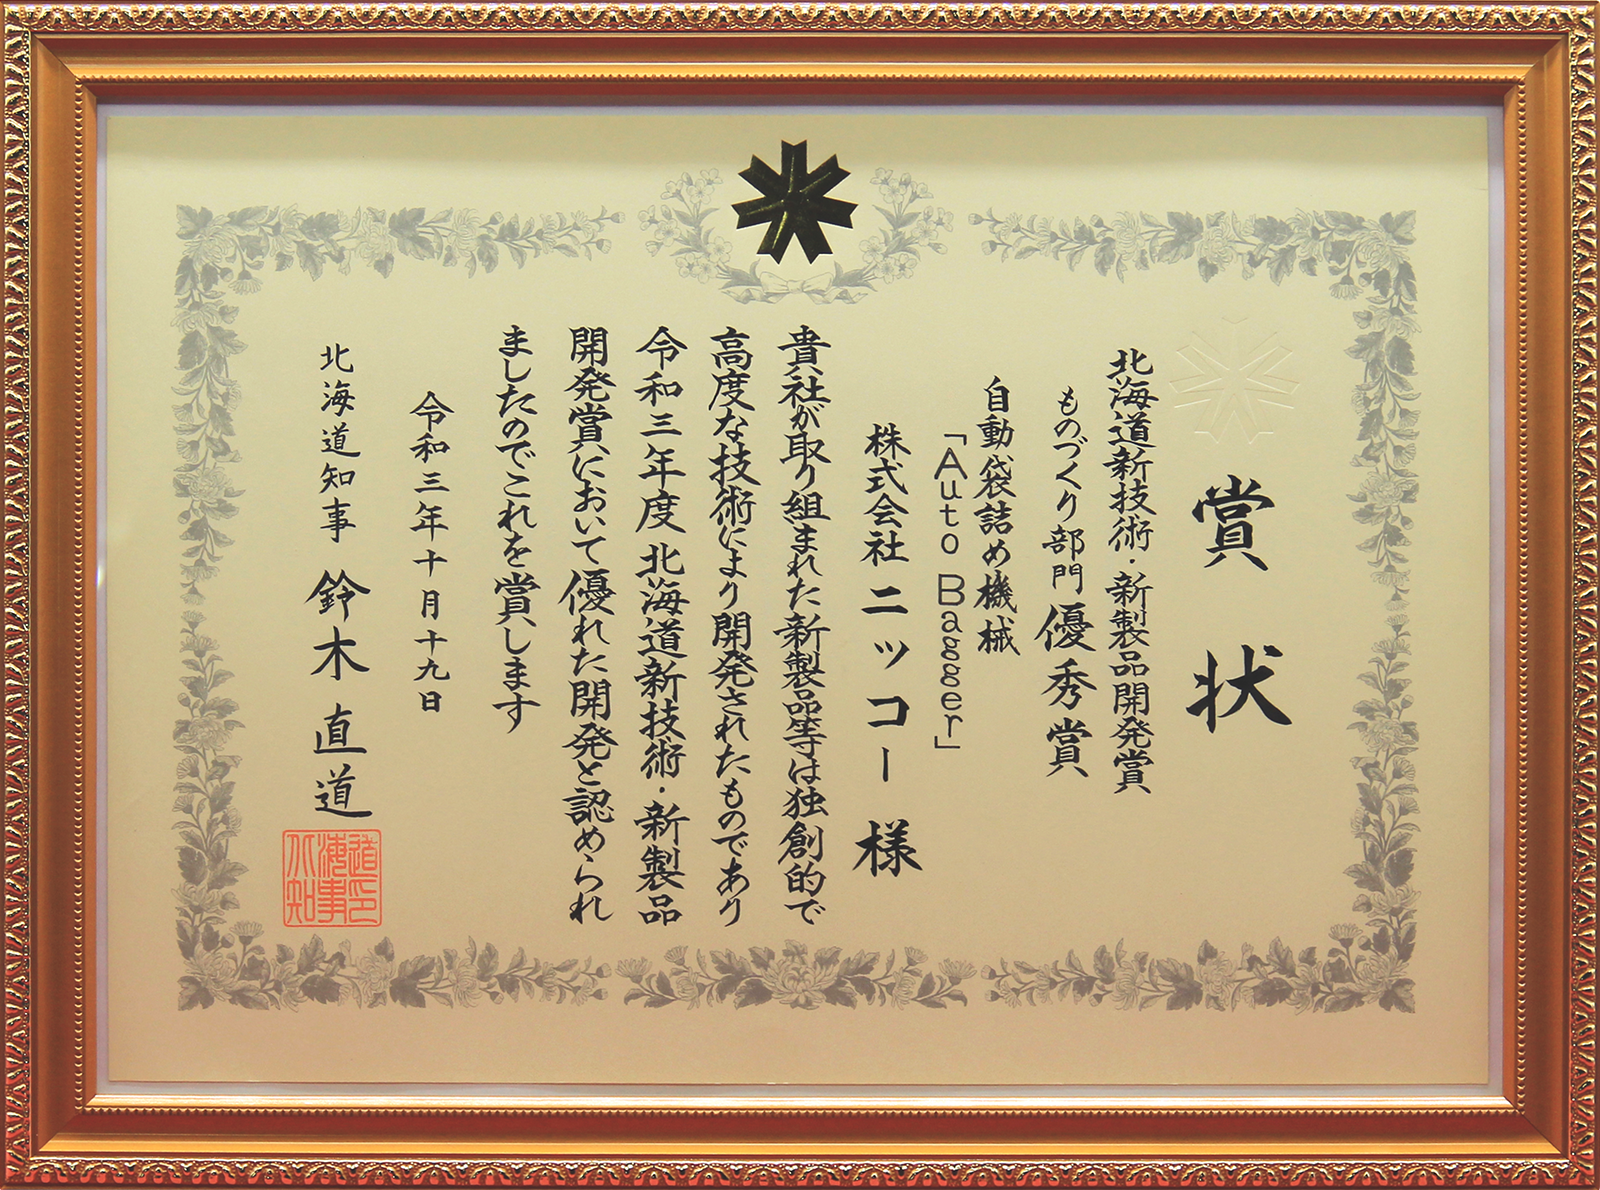 賞状
北海道新技術・新製品開発賞
ものづくり部門 優秀賞
自動袋詰め機械
「Auto Bagger」
株式会社ニッコー 様
貴社が取り組まれた新製品等は独創的で
高度な技術により開発されたものであり
令和三年度北海道新技術・新製品
開発賞において優れた開発と認められ
ましたのでこれを賞します
令和三年十月十九日
北海道知事 鈴木直道
道印
海事
北知